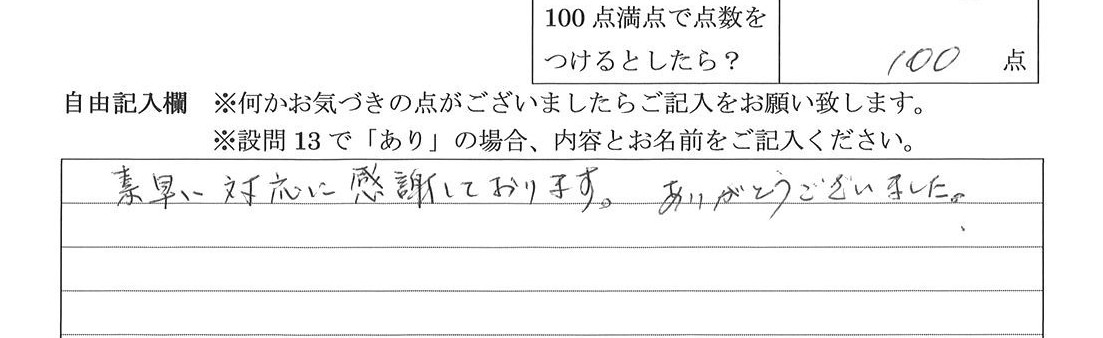 100 点満点で点数を
つけるとしたら？
100 点
自由記入欄 ※何かお気づきの点がございましたらご記入をお願い致します。
※設問 13 で「あり」の場合、内容とお名前をご記入ください。
素早い対応に感謝しております。ありがとうございました。